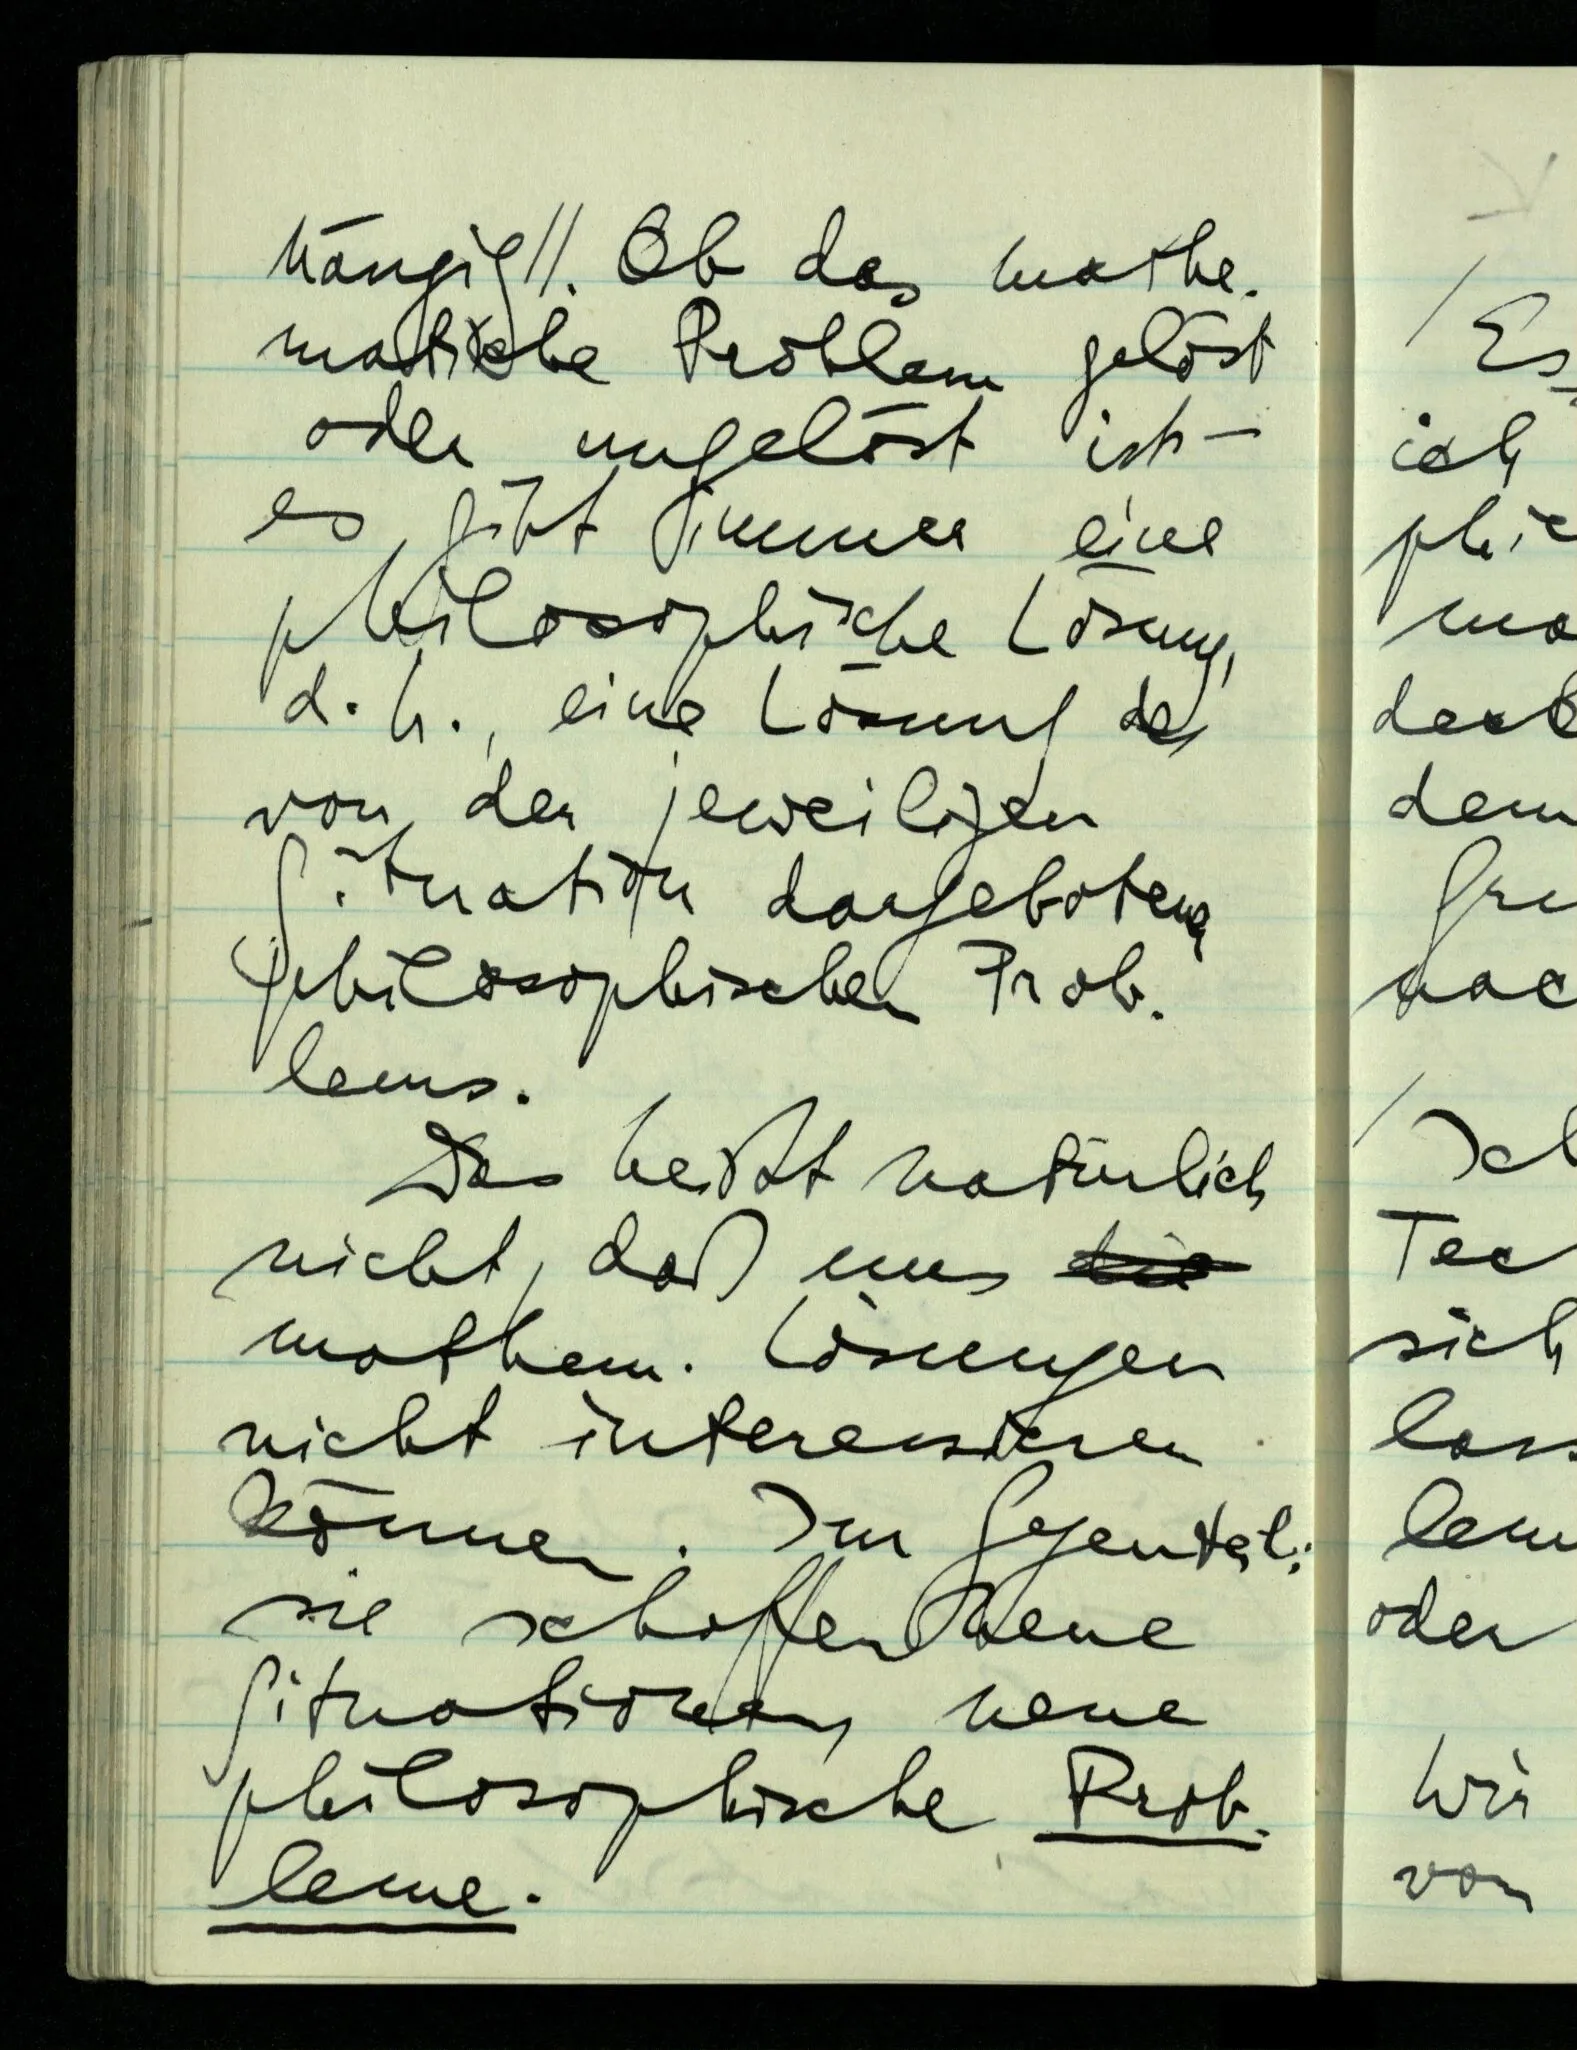 hängig//. Ob das mathe-
matische Problem gelöst
oder ungelöst ist –
es gibt immer eine
philosophische Lösung,
d.h., eine Lösung des
von der jeweiligen
Situation dargebotenen
philosophischen Prob-
lems.
Das heißt natürlich
nicht, daß uns die
mathem. Lösungen
nicht interessieren
können. Im Gegenteil:
sie schaffen neue
Situationen, neue
philosophische Prob-
leme.
/ Es
ich
phi
ma
dem
nac
/ Ich
Tec
sich
lass
oder
Wir
von